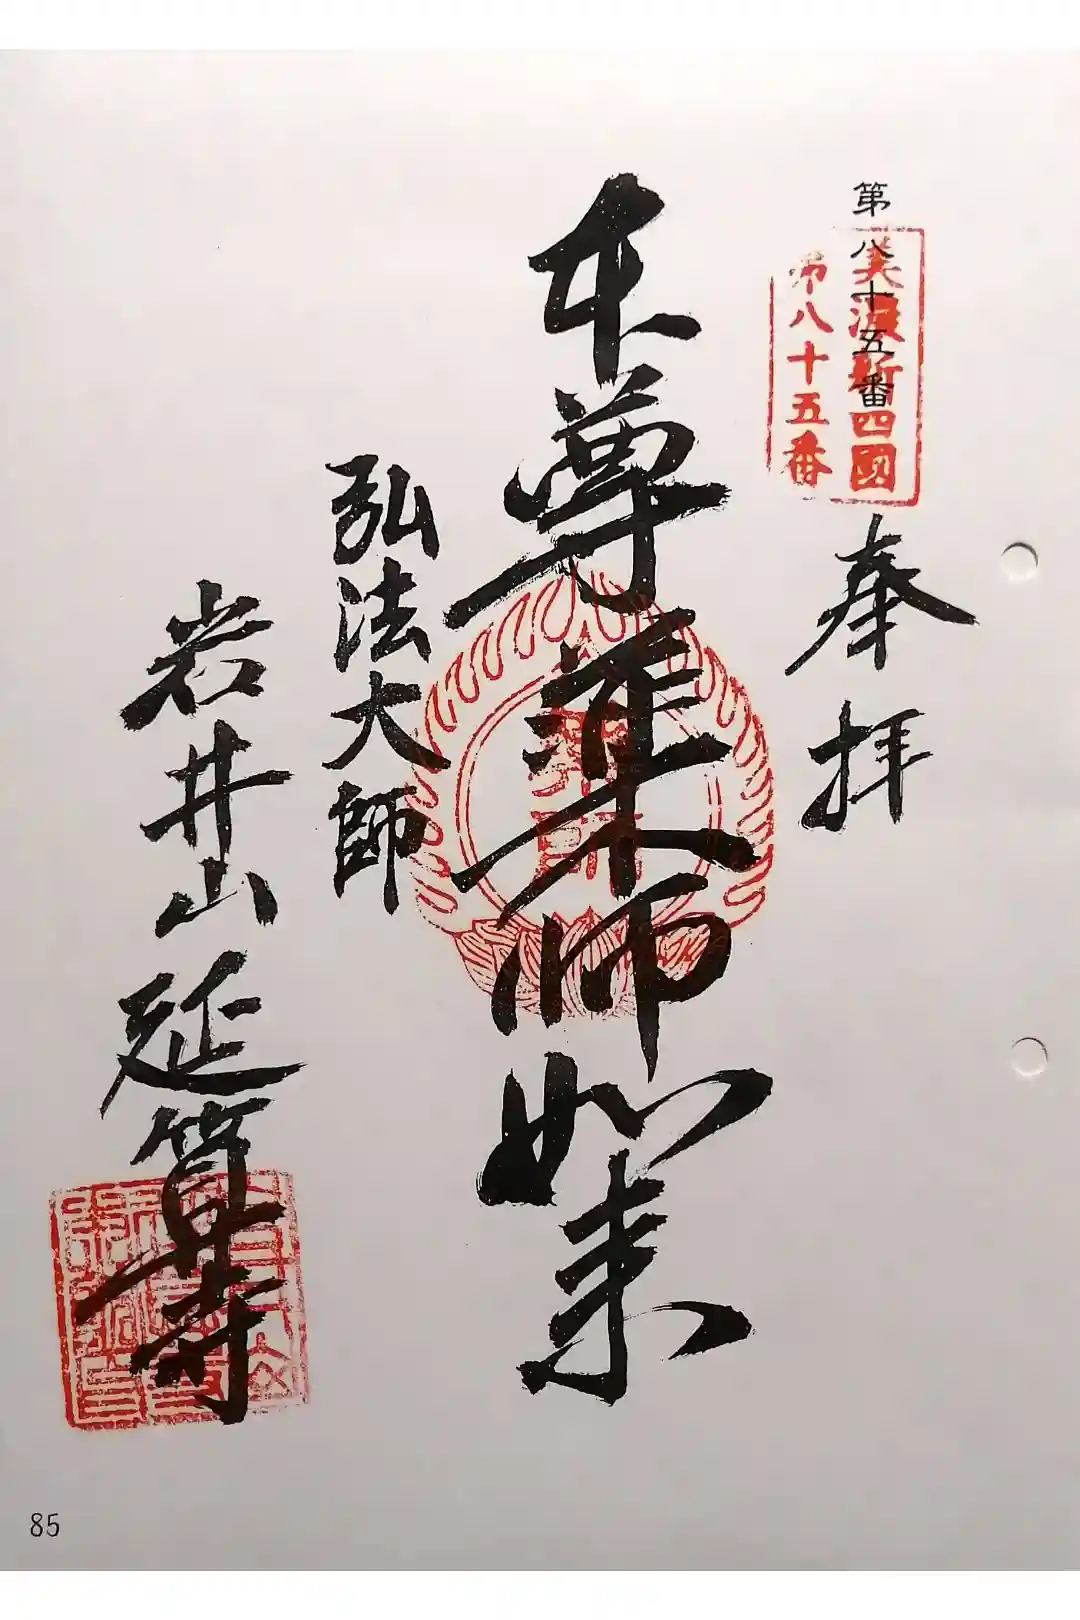 第八十五番
美濃新四國
第八十五番
奉拝
本尊薬師如来
弘法大師
岩井山延算寺
85